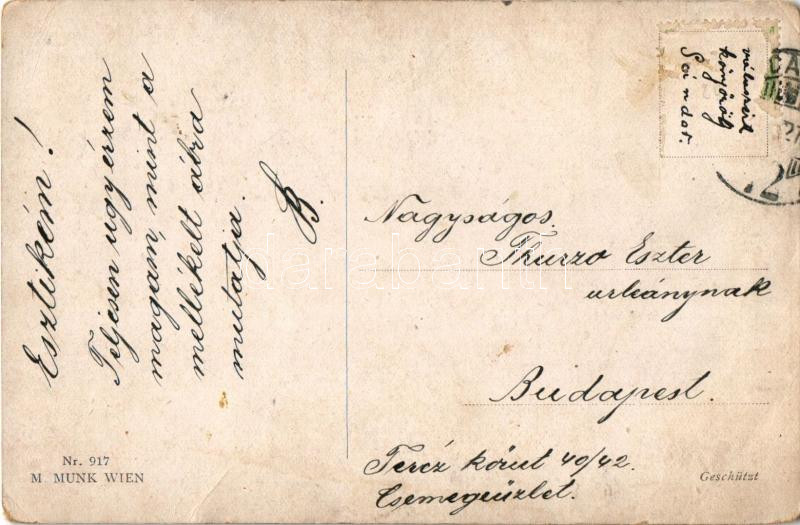 Esztikém!
Teljesen ugy érzem
magam, mint a
mellékelt ábra
mutatja.
B.
válaszért
könyörög
Sándor.
Nagyságos
Thurzo Eszter
urleánynak
Budapest.
Teréz körut 40/42.
Csemegeüzlet.
Nr. 917
M. MUNK WIEN
Geschützt
Darabanth